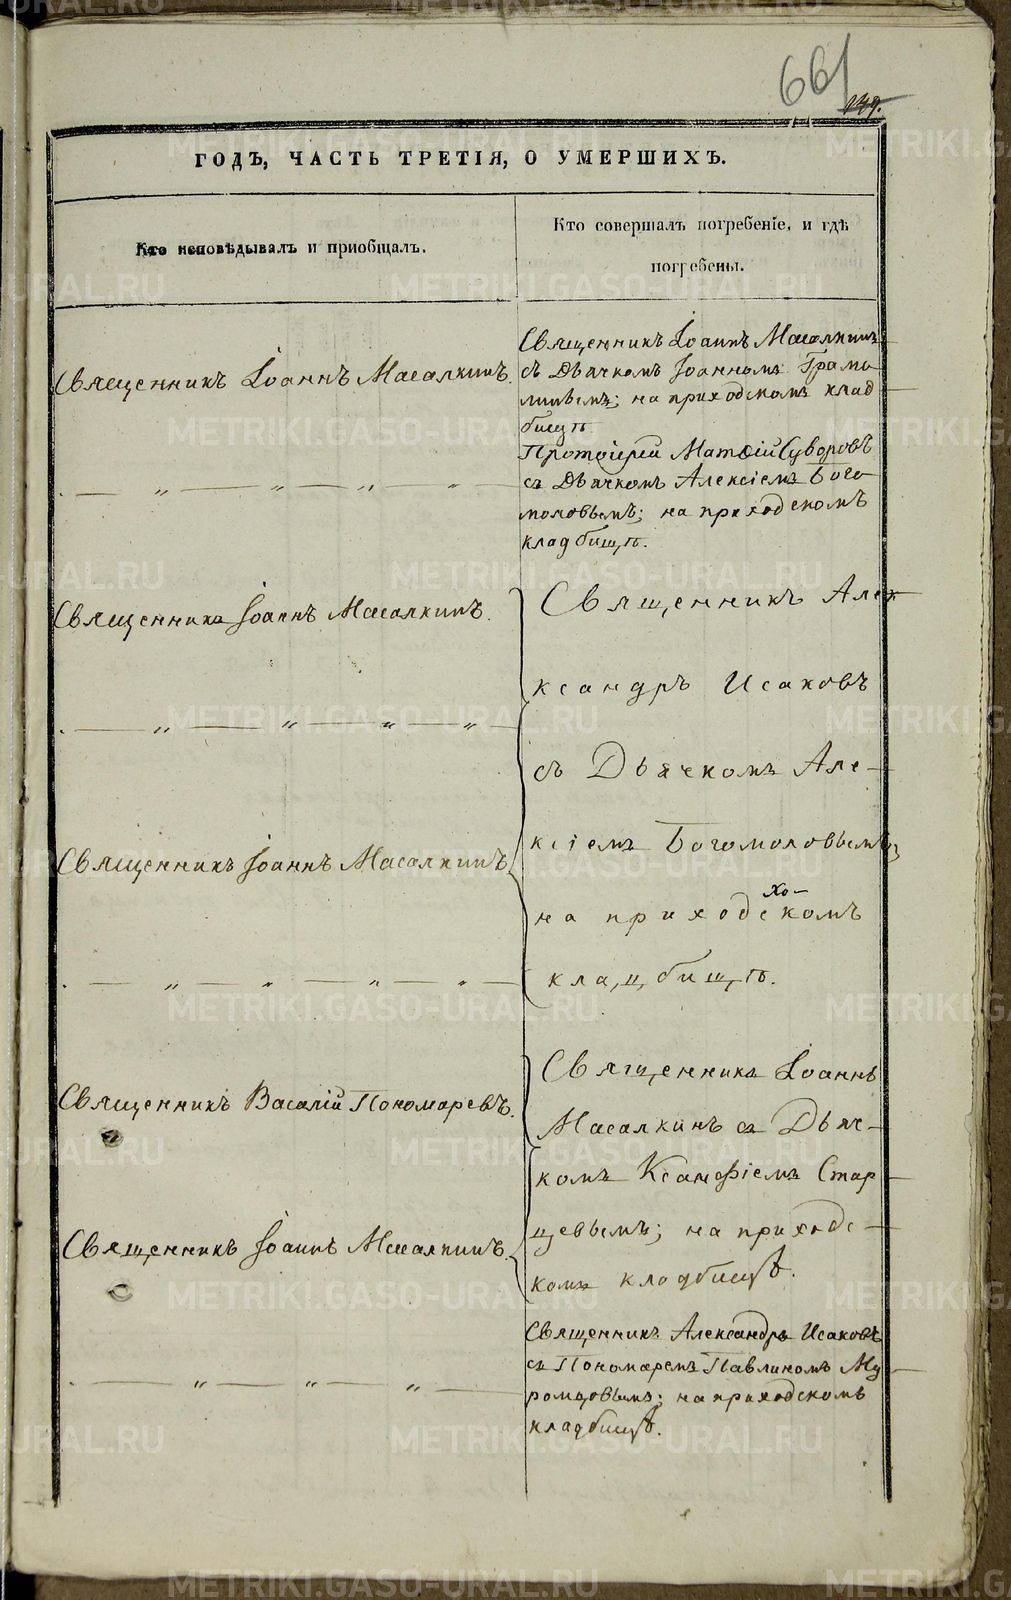 661
139.
ГОДЪ, ЧАСТЬ ТРЕТІЯ, О УМЕРШИХЪ.
Кто исповѣдывалъ и пріобщалъ.
Кто совершалъ погребеніе, и гдѣ
погребены.
Священникъ Іоаннъ Масалкинъ.
Священникъ Іоаннъ Масалкинъ
съ Дьячкомъ Іоанномъ Грамо-
линымъ; на приходскомъ клад
бищѣ
— „ — „ — „ — „ —
Протоіерей Матѳій Суворовъ
съ Дьячкомъ Алексіемъ Бого
моловымъ; на приходскомъ
кладбищѣ.
Священникъ Іоаннъ Масалкинъ.
— „ — „ — „ — „ —
Священникъ Іоаннъ Масалкинъ
— „ — „ — „ — „ —
Священникъ Алек
ксандръ Исаковъ
съ Дьячкомъ Але-
ксіемъ Богомоловымъ;
хо-
на приходскомъ
кладбищѣ.
Священникъ Василій Пономаревъ.
Священникъ Іоаннъ Масалкинъ.
Священникъ Іоаннъ
Масалкинъ съ Дьяч-
комъ Ксанфіемъ Стар
цевымъ; на приходс-
комъ кладбищѣ.
— „ — „ — „ —
Священникъ Александръ Исаковъ
съ Пономаремъ Павлиномъ Му
ромцовымъ; на приходскомъ
кладбищѣ.
METRIKI.GASO-URAL.RU